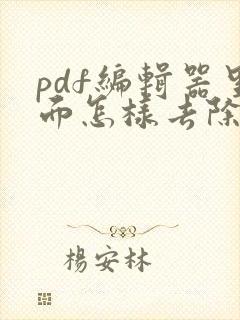 pdf編輯器里
而怎樣去除
楊安林